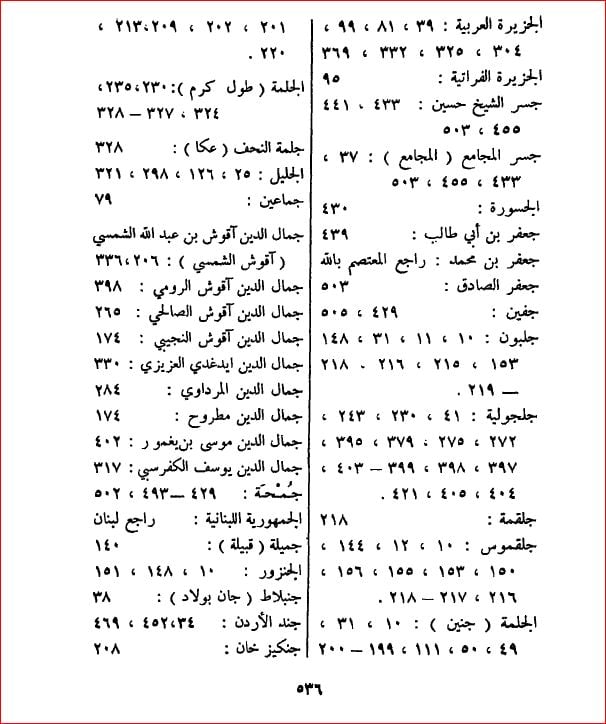 الجزيرة العربية : ٣٩ ، ٨١ ، ٩٩ ،
٣٠٤ ، ٣٢٥ ، ٣٣٢ ، ٣٦٩
الجزيرة الفراتية : ٩٥
جسر الشيخ حسين : ٤٣٣ ، ٤٤١ ،
٤٥٥ ، ٥٠٣
جسر المجامع ( المجامع ) : ٣٧ ،
٤٣٣ ، ٤٥٥ ، ٥٠٣
الجسورة : ٤٣٠
جعفر بن أبي طالب : ٤٣٩
جعفر بن محمد : راجع المعتصم بالله
جعفر الصادق : ٥٠٣
جفين : ٤٢٩ ، ٥٠٥
جلبون : ١٠ ، ١١ ، ٣١ ، ١٤٨
١٥٣ ، ٢١٥ ، ٢١٦ ، ٢١٨
— ٢١٩ .
جلجولية : ٤١ ، ٢٣٠ ، ٢٤٣ ،
٢٧٢ ، ٢٧٥ ، ٣٧٩ ، ٣٩٥ ،
٣٩٧ ، ٣٩٨ ، ٣٩٩ — ٤٠٣ ،
٤٠٤ ، ٤٠٥ ، ٤٢١ .
جلقمة : ٢١٨
جلقموس : ١٠ ، ١٢ ، ١٤٤ ،
١٥٠ ، ١٥٣ ، ١٥٥ ، ١٥٦ ،
٢١٦ ، ٢١٧ — ٢١٨ .
الجلمة ( جنين ) : ١٠ ، ٣١ ،
٤٩ ، ٥٠ ، ١١١ ، ١٩٩ — ٢٠٠
٢٠١ ، ٢٠٢ ، ٢٠٩،٢١٣ ،
٢٢٠ .
الجلمة ( طول كرم ) : ٢٣٠،٢٣٥ ،
٣٢٤ ، ٣٢٧ — ٣٢٨
جلمة النحف ( عكا ) : ٣٢٨
الجليل : ٢٥ ، ١٢٦ ، ٢٩٨ ، ٣٢١
جماعين : ٧٩
جمال الدين آقوش بن عبد الله الشمسي
( آقوش الشمسي ) : ٢٠٦،٣٣٦
جمال الدين آقوش الرومي : ٣٩٨
جمال الدين آقوش الصالحي : ٢٦٥
جمال الدين آقوش النجيبي : ١٧٤
جمال الدين ايدغدي العزيزي : ٣٣٠
جمال الدين المرداوي : ٢٨٤
جمال الدين مطروح : ١٧٤
جمال الدين موسى بن يغمور : ٤٠٢
جمال الدين يوسف الكفرسبي : ٣١٧
جُمْحَة : ٤٢٩ — ٤٩٣ ، ٥٠٢
الجمهورية اللبنانية : راجع لبنان
جميلة ( قبيلة ) : ١٤٠
الجنزور : ١٠ ، ١٤٨ ، ١٥١
جنبلاط ( جان بولاد ) : ٣٨
جند الأردن : ٤٥٢،٣٤ ، ٤٦٩
جنكيز خان : ٢٠٨
٥٣٦